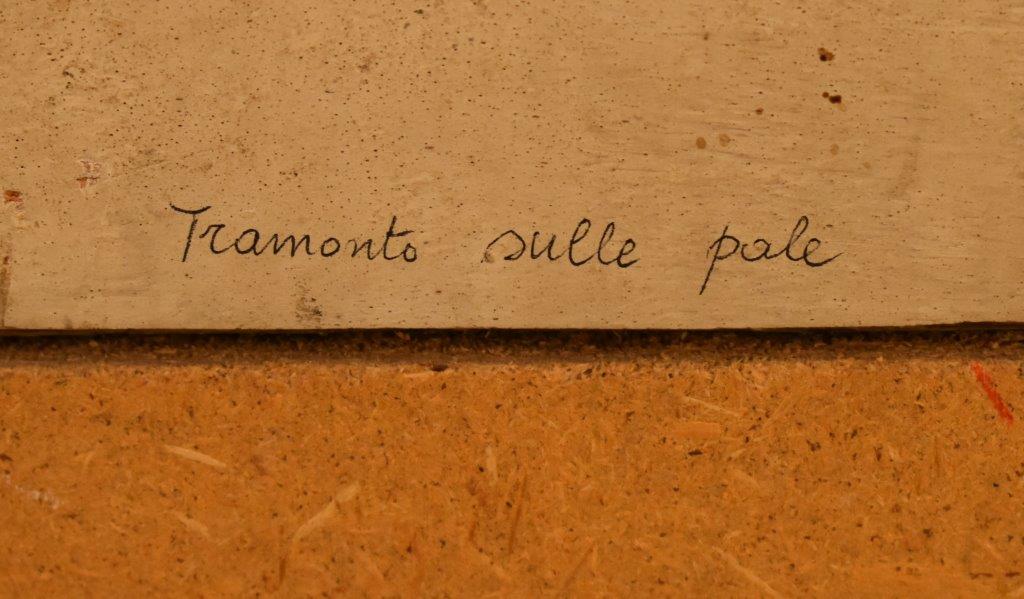 Tramonto sulle pale